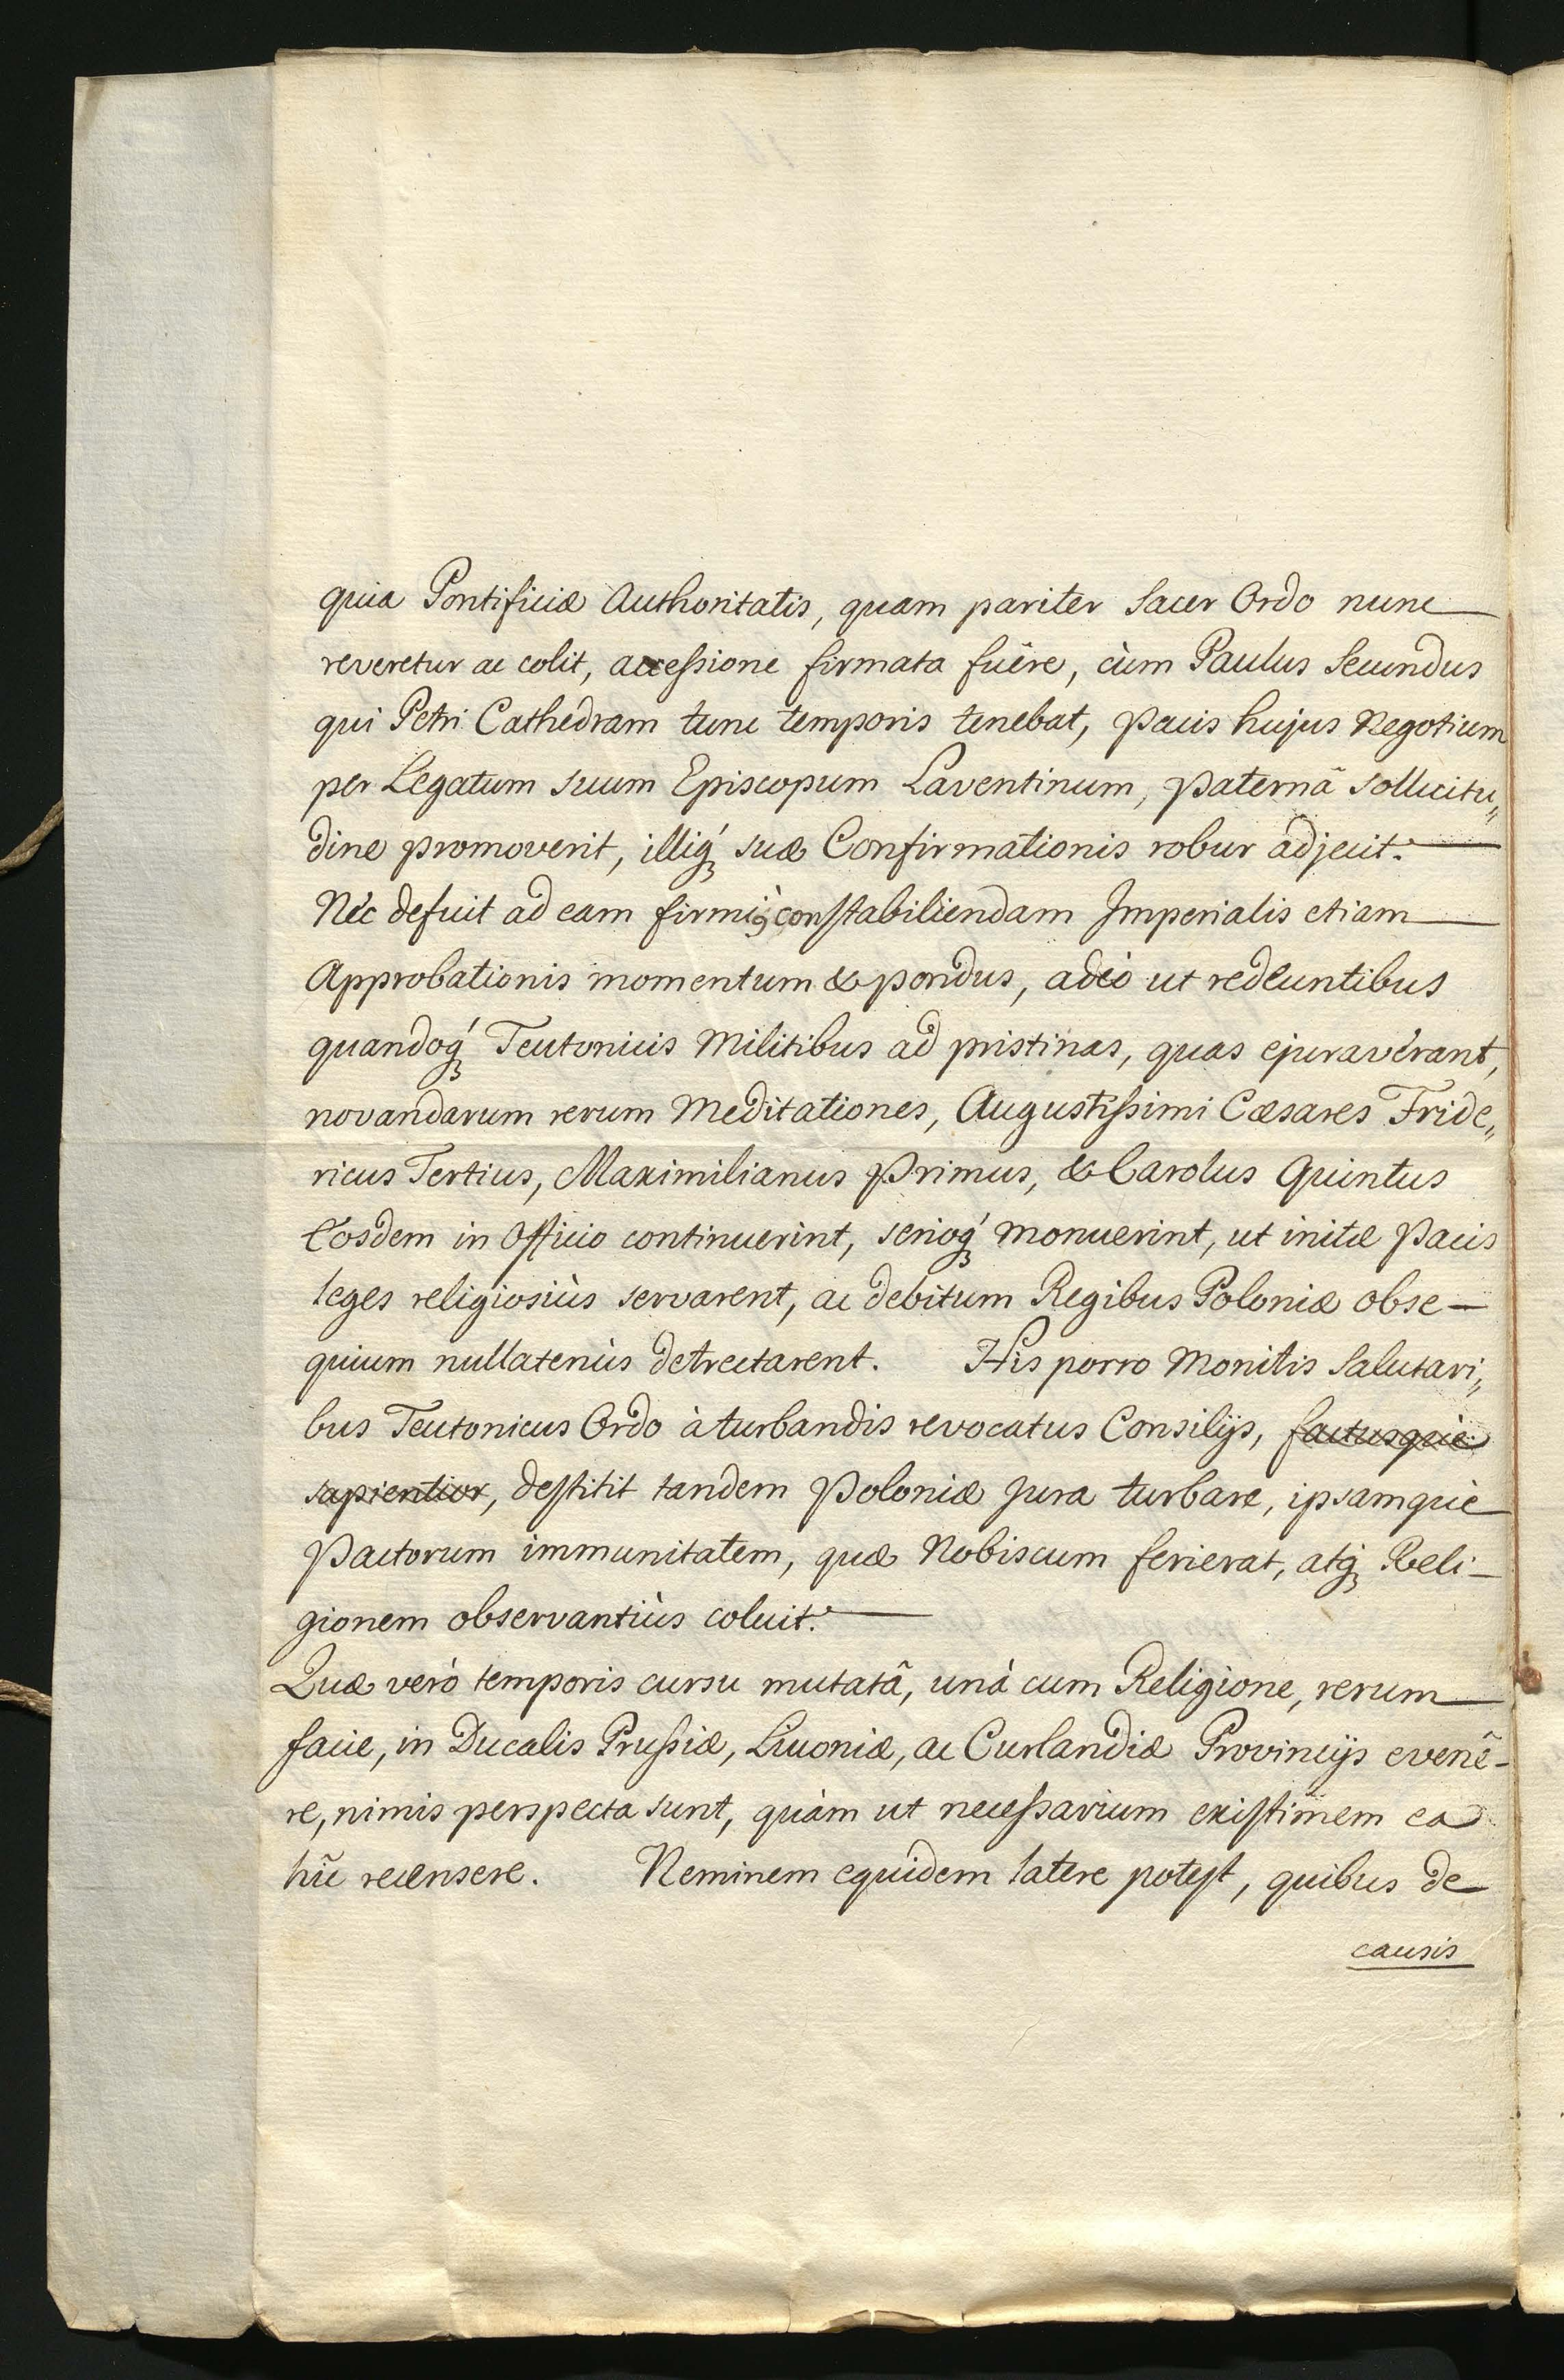 quia Pontificiæ Authoritatis, quam pariter Sacer Ordo nunc
reveretur ac colit, accessione firmata fuêre, cùm Paulus Secundus
qui Petri Cathedram tunc temporis tenebat, Pacis hujus Negotium
per Legatum suum Episcopum Laventinum, Paternâ sollicitu„
dine promoverit, illiq́ꝫ suæ Confirmationis robur adjecit.
Nec defuit ad eam firmiùs constabiliendam Imperialis etiam
Approbationis momentum & pondus, adeò ut redeuntibus
quandoq́ꝫ Teutonicis Militibus ad pristinas, quas ejuraverant,
novandarum rerum Meditationes, Augustissimi Cæsares Fride„
ricus Tertius, Maximilianus Primus, & Carolus Quintus
Eosdem in Officio continuerint, serioq́ꝫ monuerint, ut initæ Pacis
leges religiosiùs servarent, ac debitum Regibus Poloniæ obse-
quium nullatenùs detrectarent. His porro Monitis Salutari„
bus Teutonicus Ordo à turbandis revocatus Consilijs, factusquè
sapientior, destitit tandem Poloniæ Jura turbare, ipsamquè
Pactorum immunitatem, quæ Nobiscum ferierat, atqꝫ Reli-
gionem observantiùs coluit.
Quæ verò temporis cursu mutatâ, unà cum Religione, rerum
facie, in Ducalis Prussiæ, Livoniæ, ac Curlandiæ Provincijs evenê-
re, nimis perspecta sunt, quàm ut necessarium existimem ea
hîc recensere. Neminem equidem latere potest, quibus de
causis